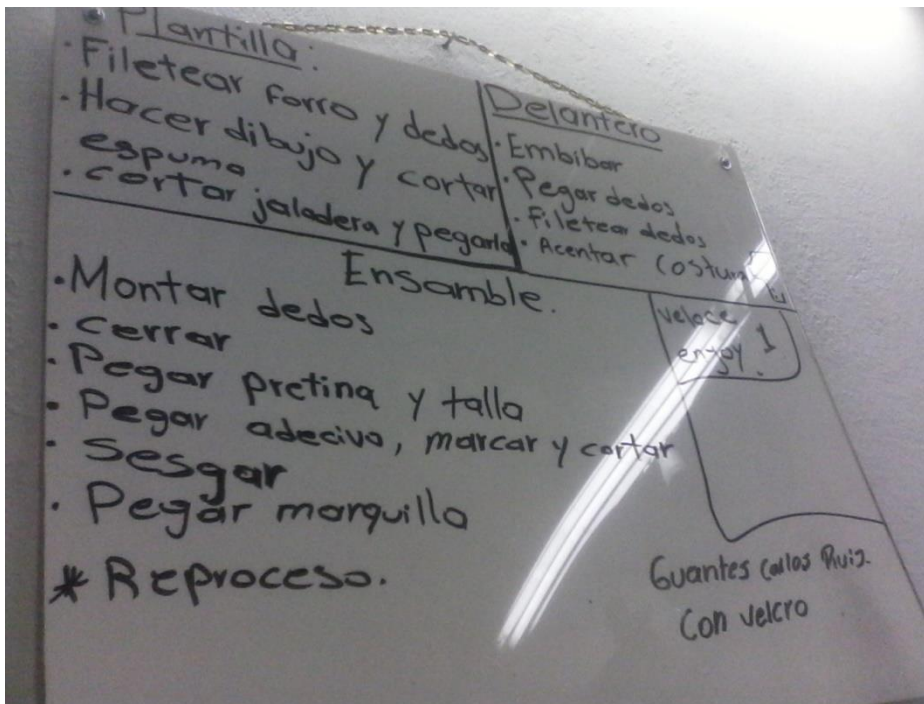 Plantilla:
· Filetear forro y dedos
· Hacer dibujo y cortar
espuma
· cortar jaladera y pegarla
Delantero
· Embibar
· Pegar dedos
· Filetear dedos
· Acentar costura
Ensamble.
· Montar dedos
· cerrar
· Pegar pretina y talla
· Pegar adecivo, marcar y cortar
· Sesgar
· Pegar marquilla
* Reproceso.
Veloce 1
enjoy.
Guantes Carlos Ruiz.
Con velcro